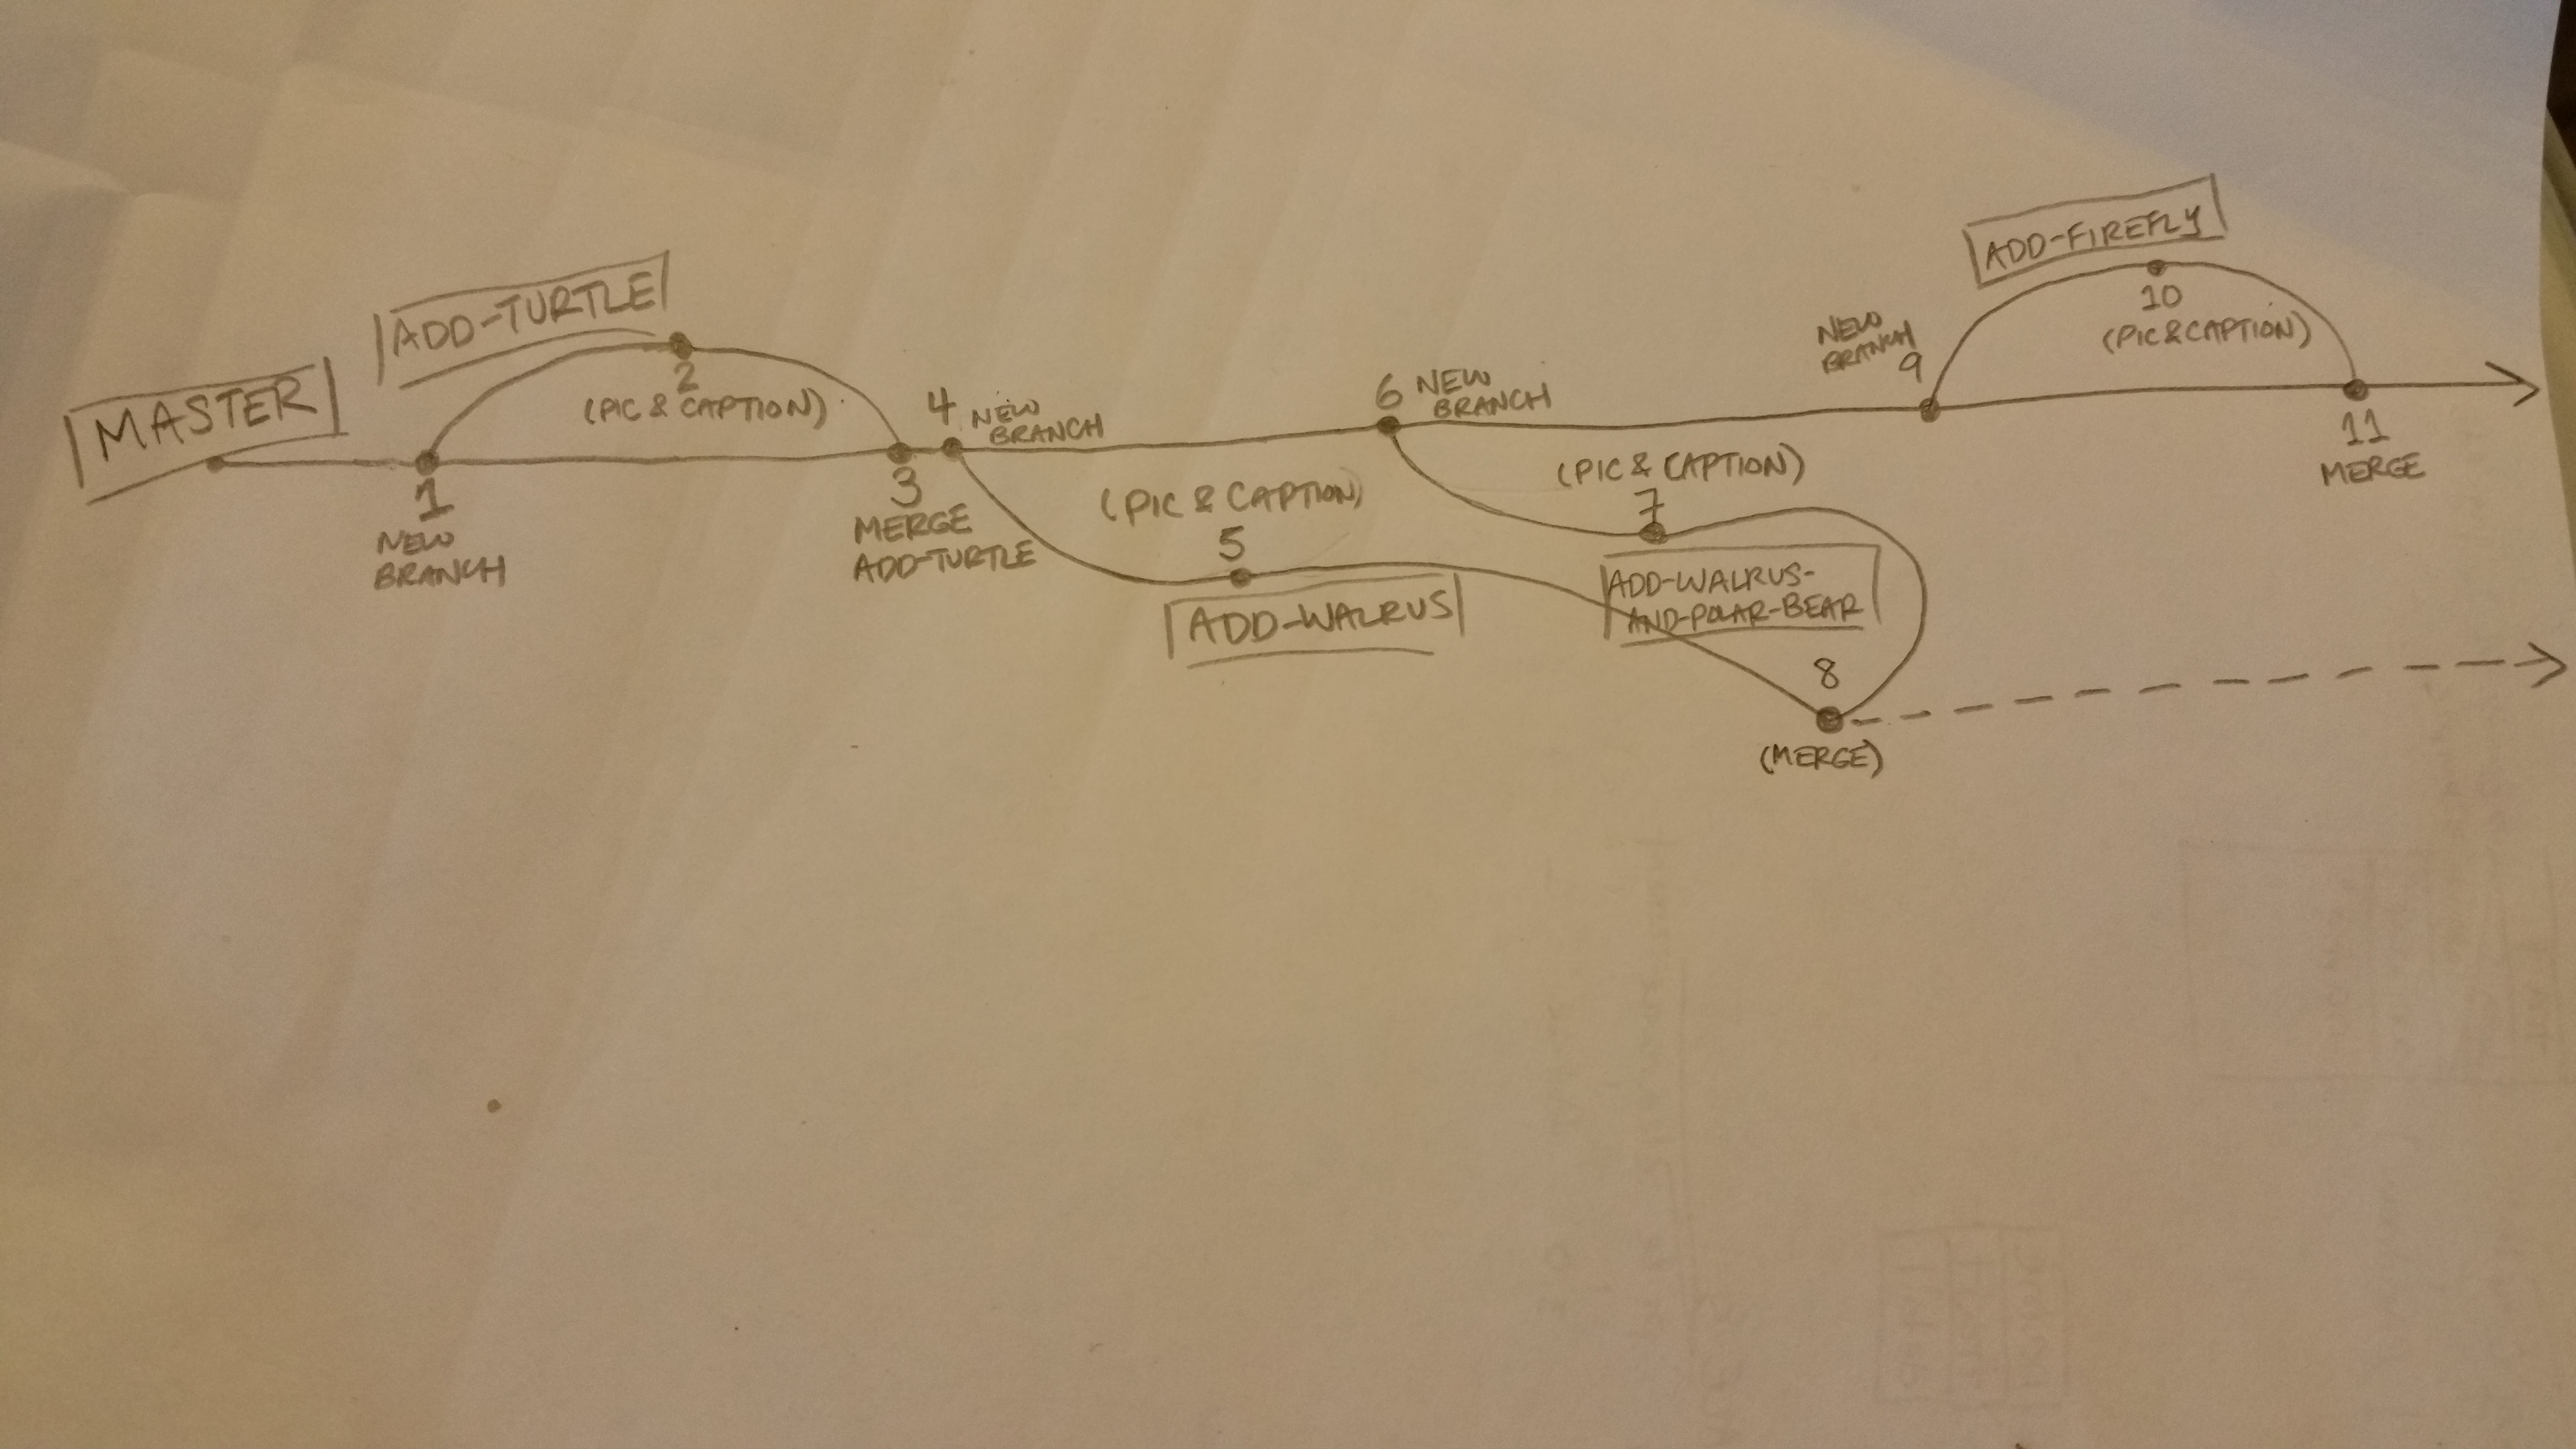 MASTER
ADD-TURTLE
1
NEW
BRANCH
2
(PIC & CAPTION)
3
MERGE
ADD-TURTLE
4 NEW
BRANCH
(PIC & CAPTION)
5
ADD-WALRUS
6 NEW
BRANCH
(PIC & CAPTION)
7
ADD-WALRUS-
AND-POLAR-BEAR
8
(MERGE)
NEW
BRANCH
9
ADD-FIREFLY
10
(PIC & CAPTION)
11
MERGE